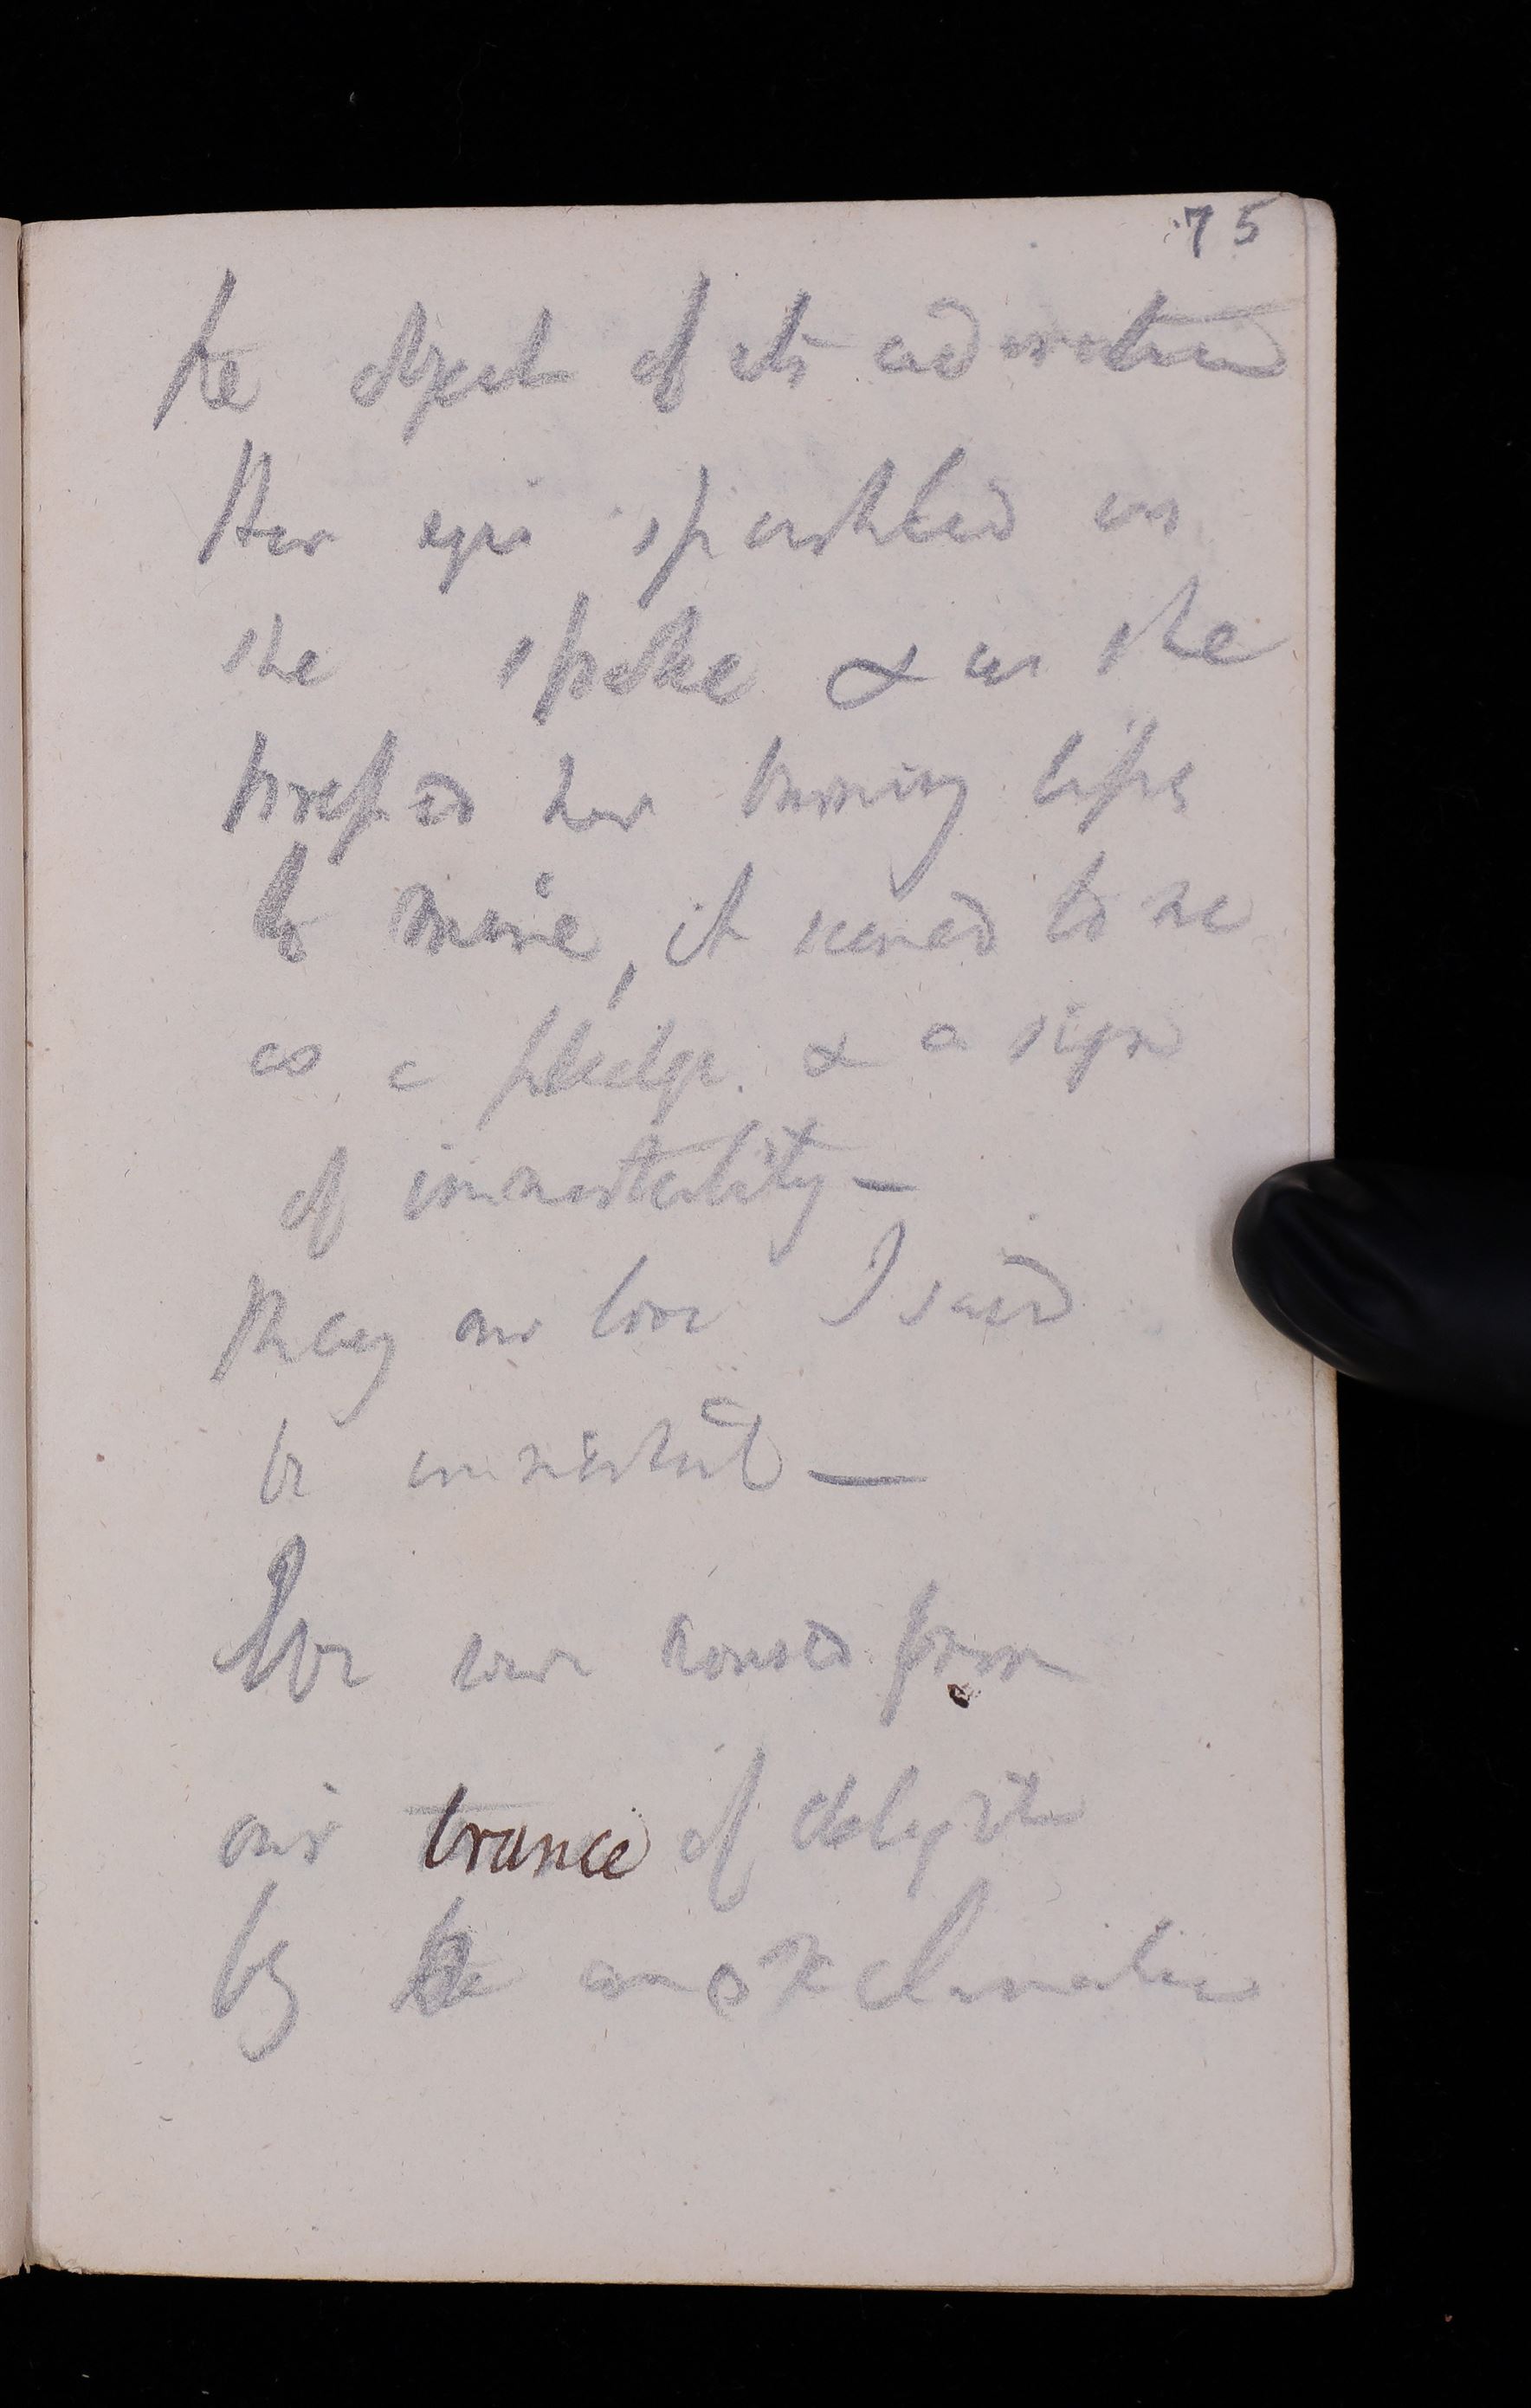 75
the object of its admiration
Her eyes sparkled as
she spoke & as she
pressed her burning lips
to mine, it seemed to me
as a pledge & a sign
of immortality —
May our love I said
be immortal —
We were roused from
our trance of delight
by the an exclamation